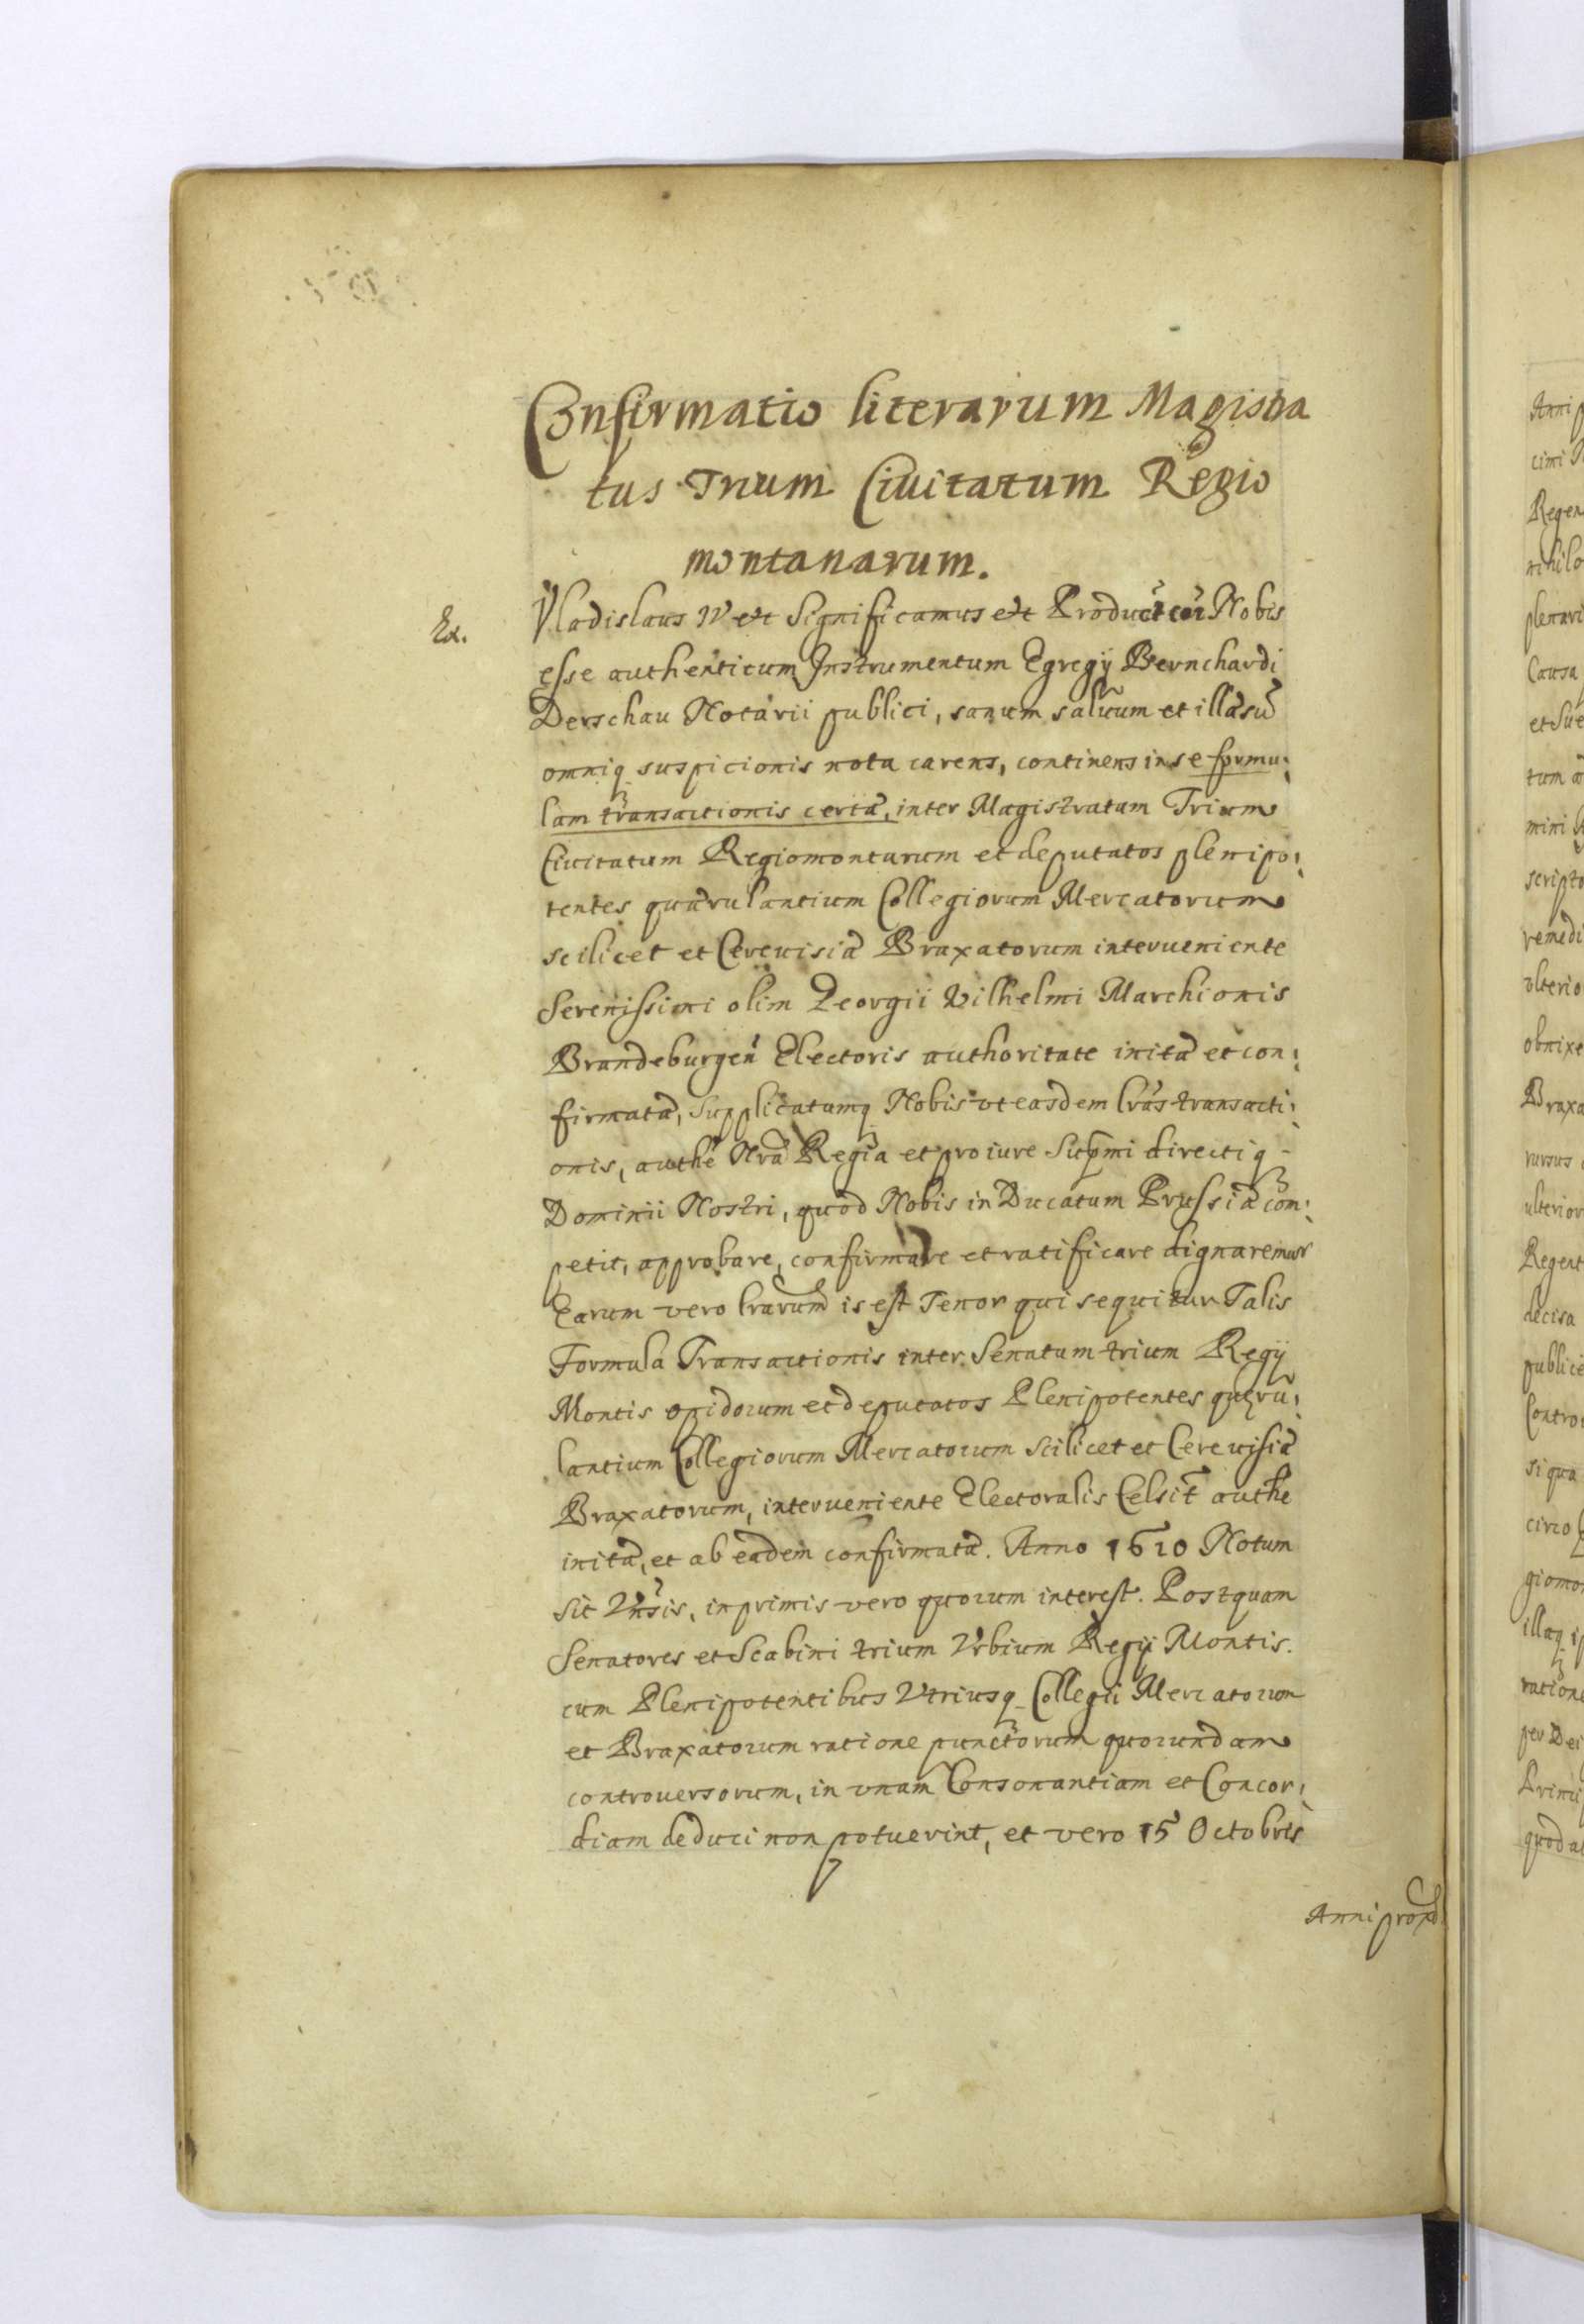 Confirmatio literarum Magistra
tus Trium Ciuitatum Regio
montanarum.
Ex.
Vladislaus IV etc Significamus etc Product coı Nobis
esse authenticum Instrumentum Egregÿ Bernchardi
Derschau Notarii publici, sanum saluum et illæsũ
omniq suspicionis nota carens, continens in se formu:
lam transactionis certã, inter Magistratum Trium
Ciuitatum Regiomontarum et deputatos plenipo:
tentes quærulantium Collegiorum Mercatorum
scilicet et Cereuisiæ Braxatorum interueniente
Serenissimi olim Georgii Wilhelmi Marchionis
Brandeburgeñ Electoris authoritate initã et con:
firmatã, Supplicatumq Nobis vt easdem lrãs transacti:
onis, authẽ Nrã Regia et pro iure Supmi directiq
Dominii Nostri, quod Nobis in Ducatum Prussiæ com:
petit, approbare, confirmare et ratificare dignaremur
Earum vero lrarum is est Tenor qui sequitur Talis
Formula Transactionis inter Senatum trium Regÿ
Montis opidorum et deputatos Plenipotentes quęrũ:
lantium Collegiorum Mercatorum scilicet et Cereuisiæ
Braxatorum, interueniente Electoralis Celsit authẽ
initã, et ab eãdem confirmatã. Anno 1620 Notum
sit Vnsis, inprimis vero quorum interest. Postquam
Senatores et Scabini trium Vrbium Regÿ Montis.
cum Plenipotentibus Vtriusq Collegii Mercatorum
et Braxatorum ratione punctorum quorundam
controuersorum, in vnam Consonantiam et Concor:
diam deduci non potuerint, et vero 15 Octobris
Anni